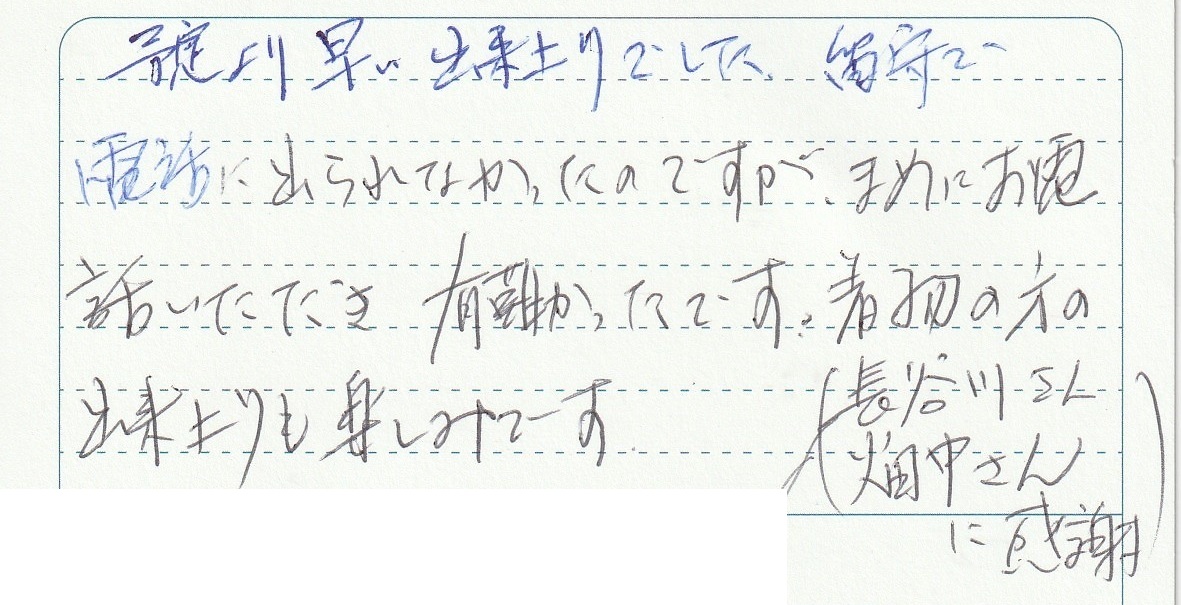 予定より早い出来上りでした、留守で
電話に出られなかったのですが、まめにお電
話いただき 有難かったです。着物の方の
出来上りも楽しみです。
(長谷川さん
畑中さん
に感謝)